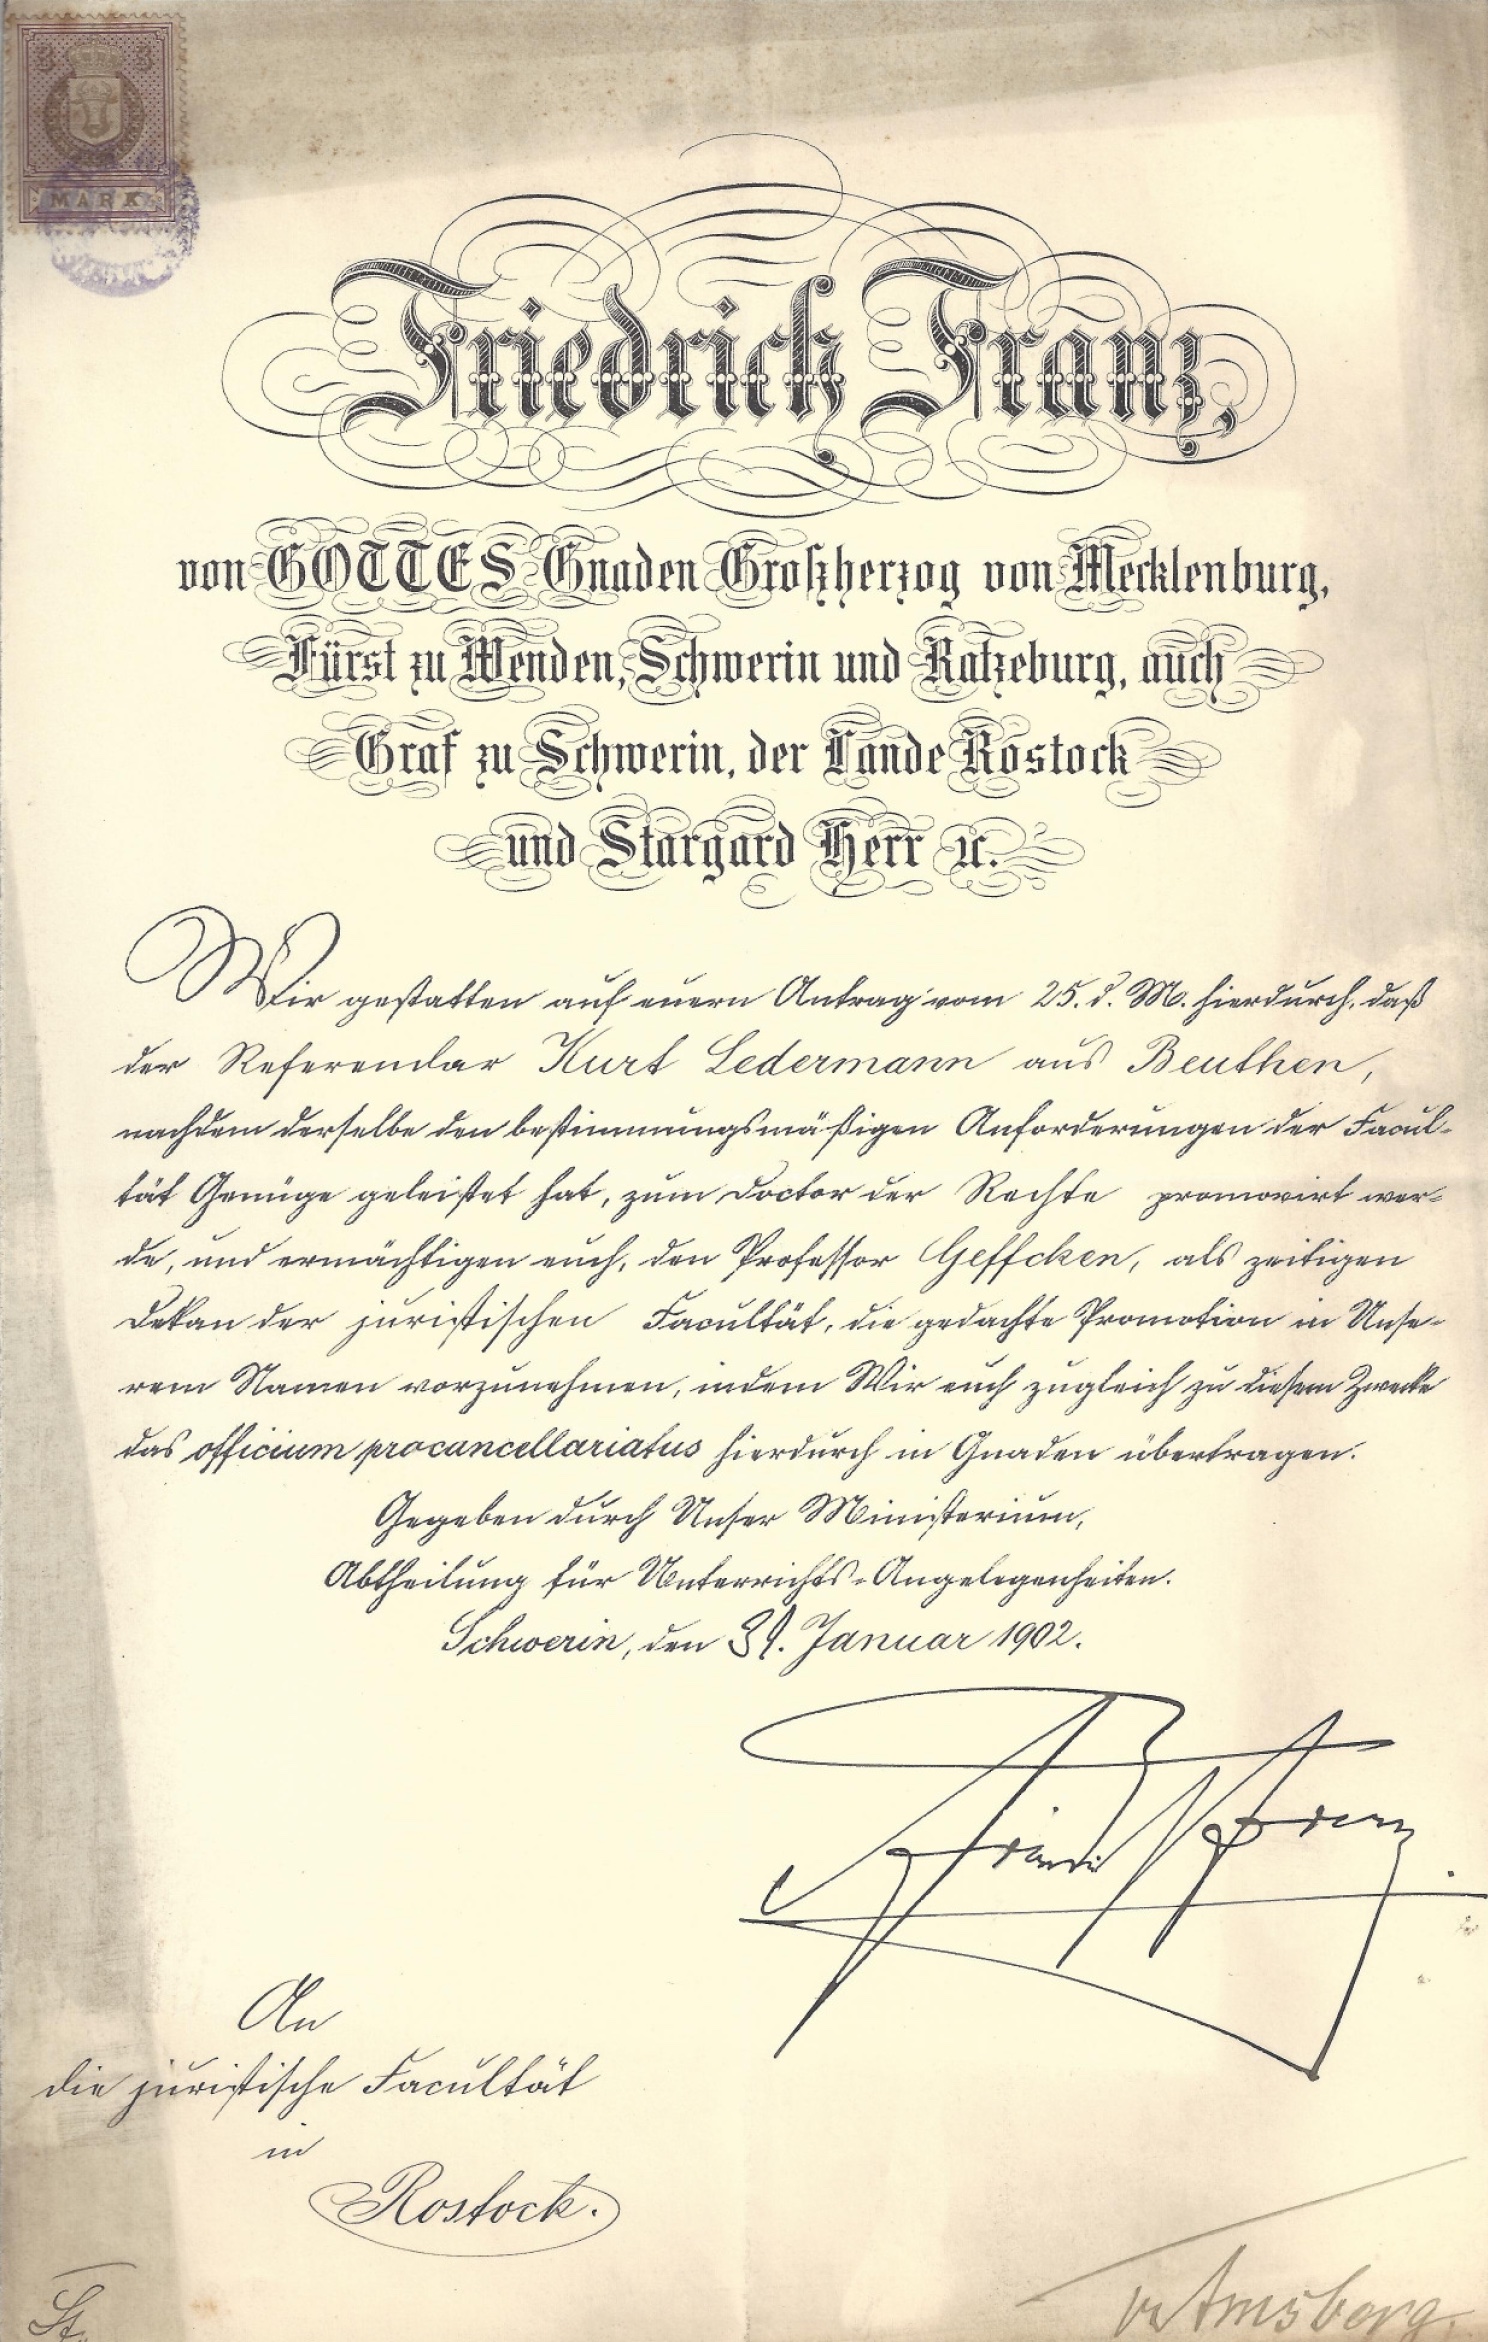 3 3
MARK
Friedrich Franz,
von GOTTES Gnaden Großherzog von Mecklenburg,
Fürst zu Wenden, Schwerin und Ratzeburg, auch
Graf zu Schwerin, der Lande Rostock
und Stargard Herr ꝛc.
Wir gestatten auf euern Antrag vom 25. d. M. hierdurch, daß
der Referendar Kurt Ledermann aus Beuthen,
nachdem derselbe den bestimmungsmäßigen Anforderungen der Facul-
tät Genüge geleistet hat, zum Doctor der Rechte promovirt wer-
de, und ermächtigen euch, den Professor Geffcken, als zeitigen
Dekan der juristischen Facultät, die gedachte Promotion in Unse-
rem Namen vorzunehmen, indem Wir euch zugleich zu diesem Zwecke
das officium procancellariatus hierdurch in Gnaden übertragen.
Gegeben durch Unser Ministerium,
Abtheilung für Unterrichts-Angelegenheiten.
Schwerin, den 31. Januar 1902.
Friedrich Franz
An
die juristische Facultät
in
Rostock.
v Amsberg.